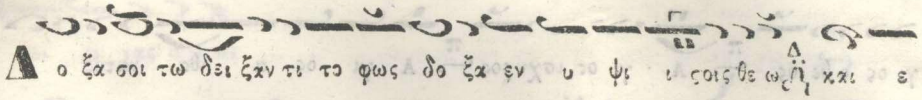 Δ ο ξα σοι τω δει ξαν τι το φως δο ξα εν υ ψι ι ϛοις θε ω Δ και ε